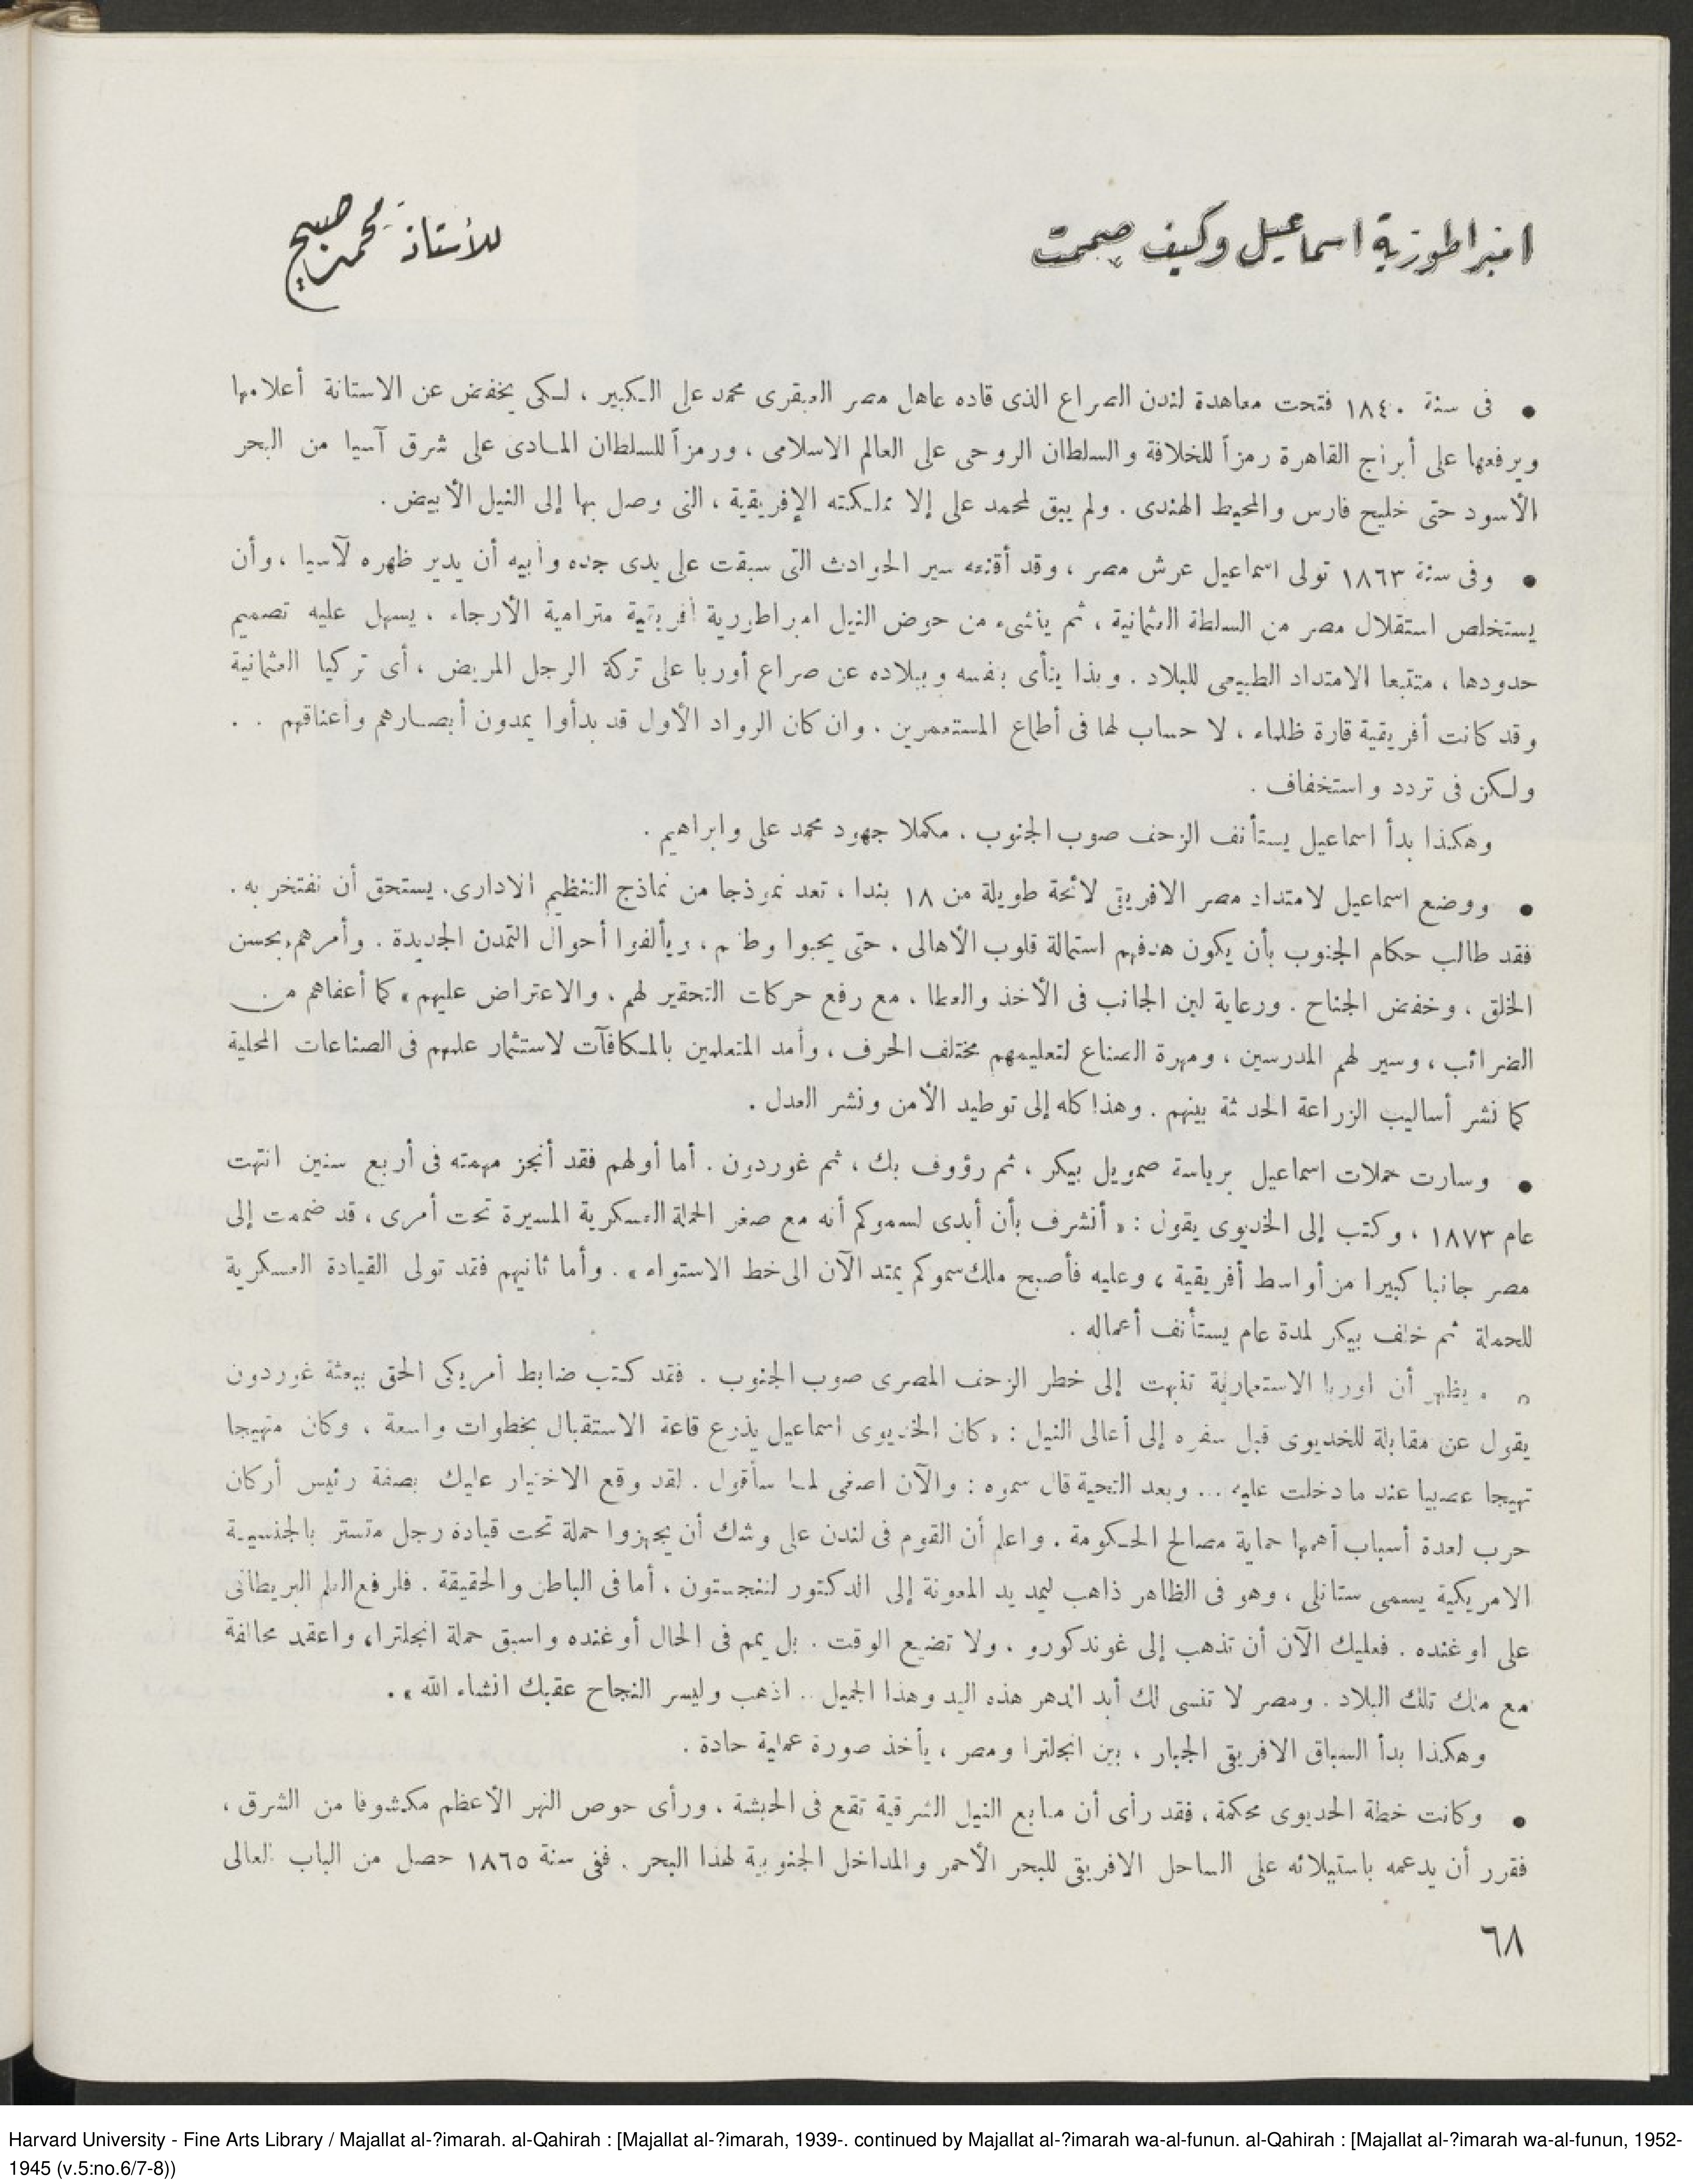 امبراطورية اسماعيل وكيف صممت
للأستاذ محمد صبيح
● فى سنة ١٨٤٠ فتحت معاهدة لندن الصراع الذى قاده عاهل مصر العبقرى محمد على الكبير ، لكى يخفض عن الاستانة أعلامها
ويرفعها على أبراج القاهرة رمزاً للخلافة والسلطان الروحى على العالم الاسلامى ، ورمزاً للسلطان المادى على شرق آسيا من البحر
الأسود حتى خليج فارس والمحيط الهندى . ولم يبق لمحمد على إلا مملكته الإفريقية ، التى وصل بها إلى النيل الأبيض .
● وفى سنة ١٨٦٣ تولى اسماعيل عرش مصر ، وقد أقنعه سير الحوادث التى سبقت على يدى جده وأبيه أن يدير ظهره لآسيا ، وأن
يستخلص استقلال مصر من السلطة العثمانية ، ثم ينشىء من حوض النيل امبراطورية افريقية مترامية الأرجاء ، يسهل عليه تصميم
حدودها ، متتبعا الامتداد الطبيعى للبلاد . وبذا ينأى بنفسه وببلاده عن صراع أوربا على تركة الرجل المريض ، أى تركيا العثمانية
وقد كانت أفريقية قارة ظلماء ، لا حساب لها فى أطماع المستعمرين . وان كان الرواد الأول قد بدأوا يمدون أبصارهم وأعناقهم . .
ولكن فى تردد واستخفاف .
وهكذا بدأ اسماعيل يستأنف الزحف صوب الجنوب ، مكملا جهود محمد على وابراهيم .
● ووضع اسماعيل لامتداد مصر الافريقى لائحة طويلة من ١٨ بندا ، تعد نموذجا من نماذج التنظيم الادارى. يستحق أن نفتخر به .
فقد طالب حكام الجنوب بأن يكون هدفهم استمالة قلوب الأهالى ، حتى يحبوا وطنهم ، ويألفوا أحوال التمدن الجديدة . وأمرهم بحسن
الخلق ، وخفض الجناح . ورعاية لين الجانب فى الأخذ والعطا ، مع رفع حركات التحقير لهم ، والاعتراض عليهم » كما أعفاهم من
الضرائب ، وسير لهم المدرسين ، ومهرة الصناع لتعليمهم مختلف الحرف ، وأمد المتعلمين بالمكافآت لاستثمار علمهم فى الصناعات المحلية
كما نشر أساليب الزراعة الحديثة بينهم . وهذا كله إلى توطيد الأمن ونشر العدل .
● وسارت حملات اسماعيل برياسة صمويل بيكر ، ثم رؤوف بك ، ثم غوردون . أما أولهم فقد أنجز مهمته فى أربع سنين انتهت
عام ١٨٧٣ ، وكتب إلى الخديوى يقول : « أتشرف بأن أبدى لسموكم أنه مع صغر الحملة العسكرية المسيرة تحت أمرى ، قد ضممت إلى
مصر جانبا كبيرا من أواسط أفريقية ، وعليه فأصبح ملك سموكم يمتد الآن الى خط الاستواء » . وأما ثانيهم فقد تولى القيادة العسكرية
للحملة ثم خلف بيكر لمدة عام يستأنف أعماله .
● ويظهر أن اوربا الاستعمارية تنبهت إلى خطر الزحف المصرى صوب الجنوب . فقد كتب ضابط أمريكى الحق ببعثة غوردون
يقول عن مقابلة للخديوى قبل سفره إلى أعالى النيل : « كان الخديوى اسماعيل يذرع قاعة الاستقبال بخطوات واسعة ، وكان متهيجا
تهيجا عصبيا عند ما دخلت عليه ... وبعد التحية قال سموه : والآن اصغى لما سأقول . لقد وقع الاختيار عليك بصفة رئيس أركان
حرب لعدة أسباب أهمها حماية مصالح الحكومة . واعلم أن القوم فى لندن على وشك أن يجهزوا حملة تحت قيادة رجل متستر بالجنسية
الامريكية يسمى ستانلى ، وهو فى الظاهر ذاهب ليمد يد المعونة إلى الدكتور لفنجستون ، أما فى الباطن والحقيقة . فلرفع العلم البريطانى
على اوغنده . فعليك الآن أن تذهب إلى غوندكورو ، ولا تضيع الوقت . بل يمم فى الحال أوغنده واسبق حملة انجلترا، واعقد محالفة
مع ملك تلك البلاد . ومصر لا تنسى لك أبد الدهر هذه اليد وهذا الجميل .. اذهب وليسر النجاح عقبك انشاء الله » .
وهكذا بدأ السباق الافريقى الجبار ، بين انجلترا ومصر ، يأخذ صورة عملية حادة .
● وكانت خطة الخديوى محكمة ، فقد رأى أن منابع النيل الشرقية تقع فى الحبشة ، ورأى حوض النهر الأعظم مكشوفا من الشرق ،
فقرر أن يدعمه باستيلائه على الساحل الافريقى للبحر الأحمر والمداخل الجنوبية لهذا البحر . ففى سنة ١٨٦٥ حصل من الباب العالى
٦٨
Harvard University - Fine Arts Library / Majallat al-?imarah. al-Qahirah : [Majallat al-?imarah, 1939-. continued by Majallat al-?imarah wa-al-funun. al-Qahirah : [Majallat al-?imarah wa-al-funun, 1952-
1945 (v.5:no.6/7-8))